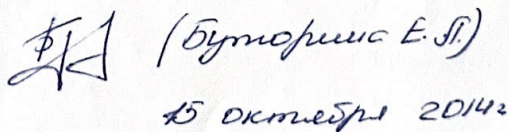 (Буторина Е.П.)
15 октября 2014г